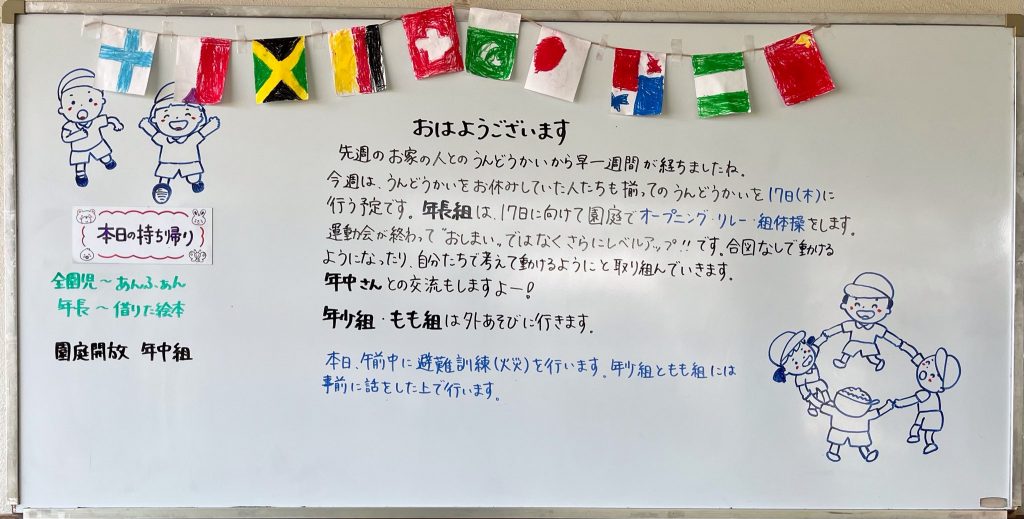 おはようございます
先週のお家の人とのうんどうかいから早一週間が経ちましたね。
今週は、うんどうかいをお休みしていた人たちも揃ってのうんどうかいを17日(木)に
行う予定です。年長組は、17日に向けて園庭でオープニング・リレー・組体操をします。
運動会が終わって"おしまい"ではなくさらにレベルアップ!!です。合図なしで動ける
ようになったり、自分たちで考えて動けるようにと取り組んでいきます。
年中さんとの交流もしますよー!
年少組・もも組は外あそびに行きます。
本日、午前中に避難訓練(火災)を行います。年少組ともも組には
事前に話をした上で行います。
本日の持ち帰り
全園児〜あんふぁん
年長〜借りた絵本
園庭開放 年中組